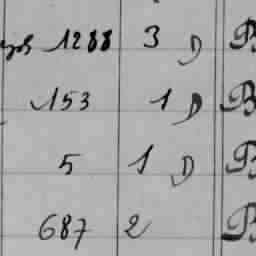 1288 3 D B
153 1 D B
5 1 D B
687 2 B